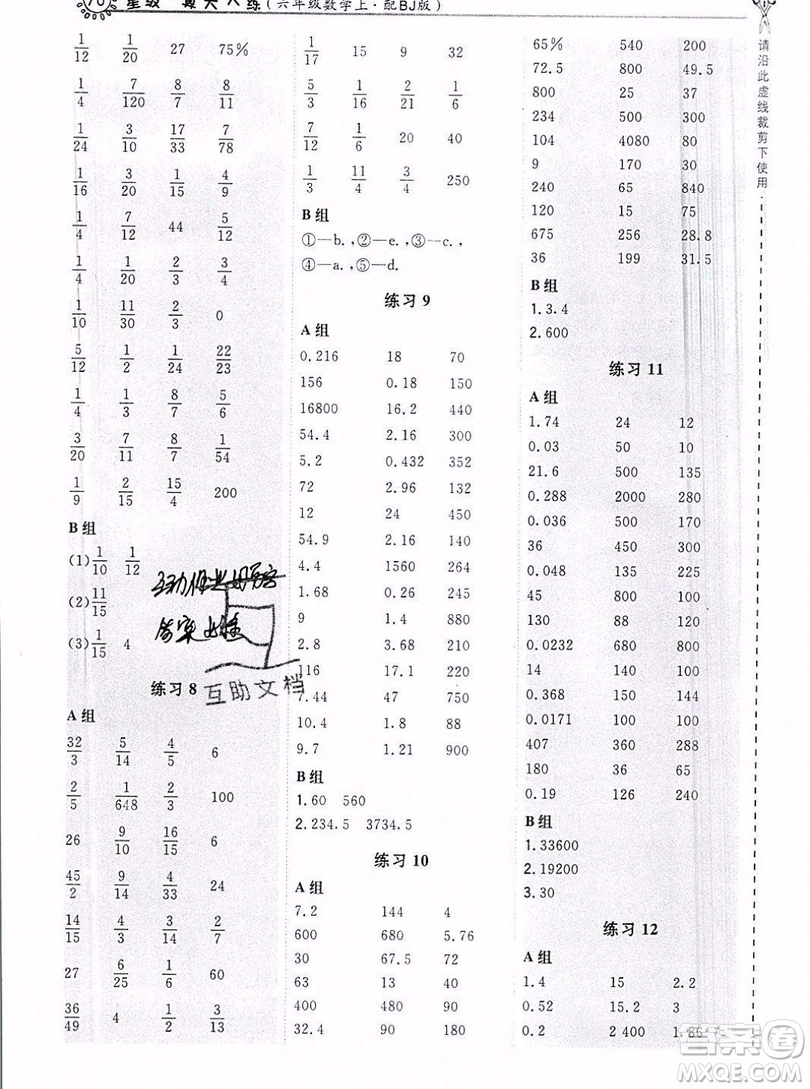 70 星级口算天天练(六年级数学上·配BJ版)
1/12 1/20 27 75%
1/4 7/120 8/7 8/11
1/24 3/10 17/33 7/78
1/16 3/20 1/15 4/9
1/4 7/12 44 5/12
1/4 1/20 2/21 9/20
1/10 11/30 2/3 0
5/12 1/2 1/24 22/23
1/4 1/3 8/7 5/6
3/20 7/11 8/7 1/54
1/9 2/15 15/4 200
B组
(1)1/10 1/12
(2)11/15
(3)1/15 4
练习8
A组
32/3 5/14 4/5 6
2/5 1/648 2/3 100
26 9/10 16/15 6
45/2 9/10 4/3 24
14/15 14/15 2/9 9/20
27 6/25 1/6 60
36/49 4 1/2 3/13
1/17 15 9 32
5/3 1/6 2/21 1/6
7/12 1/6 20 40
1/3 11/4 3/4 250
B组
①—b.,②—e.,③—c.,
④—a.,⑤—d.
练习9
A组
0.216 18 70
156 0.18 150
16800 16.2 440
54.4 2.16 300
5.2 0.432 352
72 2.96 132
12 24 500
54.9 2.4 135
4.4 1560 264
1.68 0.26 245
9 1.4 880
2.8 3.68 450
116 17.1 220
7.44 47 750
10.4 1.8 88
9.7 1.21 900
B组
1.60 560
2.234.5 3734.5
练习10
A组
7.2 144 4
600 680 5.76
30 67.5 38
63 54 510
400 480 90
32.4 90 180
65% 540 200
72.5 800 49.5
800 25 37
234 500 104
104 4080 80
9 170 30
240 65 840
120 15 75
675 256 28.8
36 199 31.5
B组
1.3.4
2.600
练习11
A组
1.74 24 12
0.03 50 10
21.6 500 135
0.288 2000 280
0.036 500 150
36 450 111
0.048 135 35
45 800 100
130 88 110
0.0232 680 130
14 140 100
0.368 150 144
0.0171 100 150
407 360 288
180 36 88
0.19 126 240
B组
1.33600
2.19200
3.30
练习12
A组
1.4 15 2.2
0.52 15.2 3
0.2 2 400 1.86
请沿此虚线裁剪下使用
互助文档
答案圈